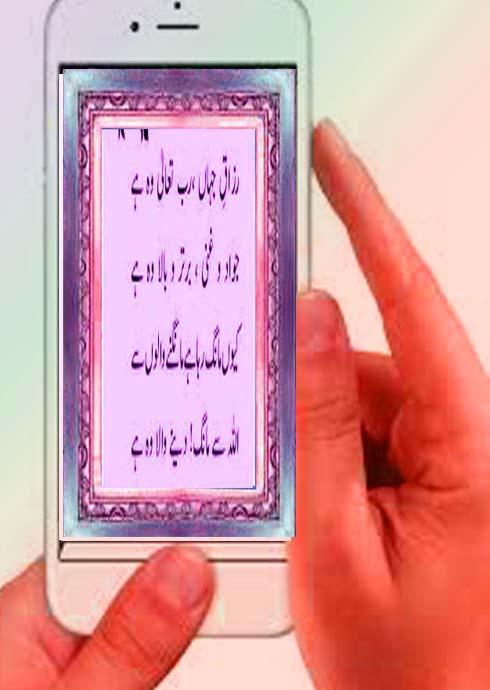 رزاقِ جہاں، رب تعالیٰ وہ ہے
جواد و غنی، برتر و بالا وہ ہے
کیوں مانگ رہا ہے مانگنے والوں سے
اللہ سے مانگ! دینے والا وہ ہے